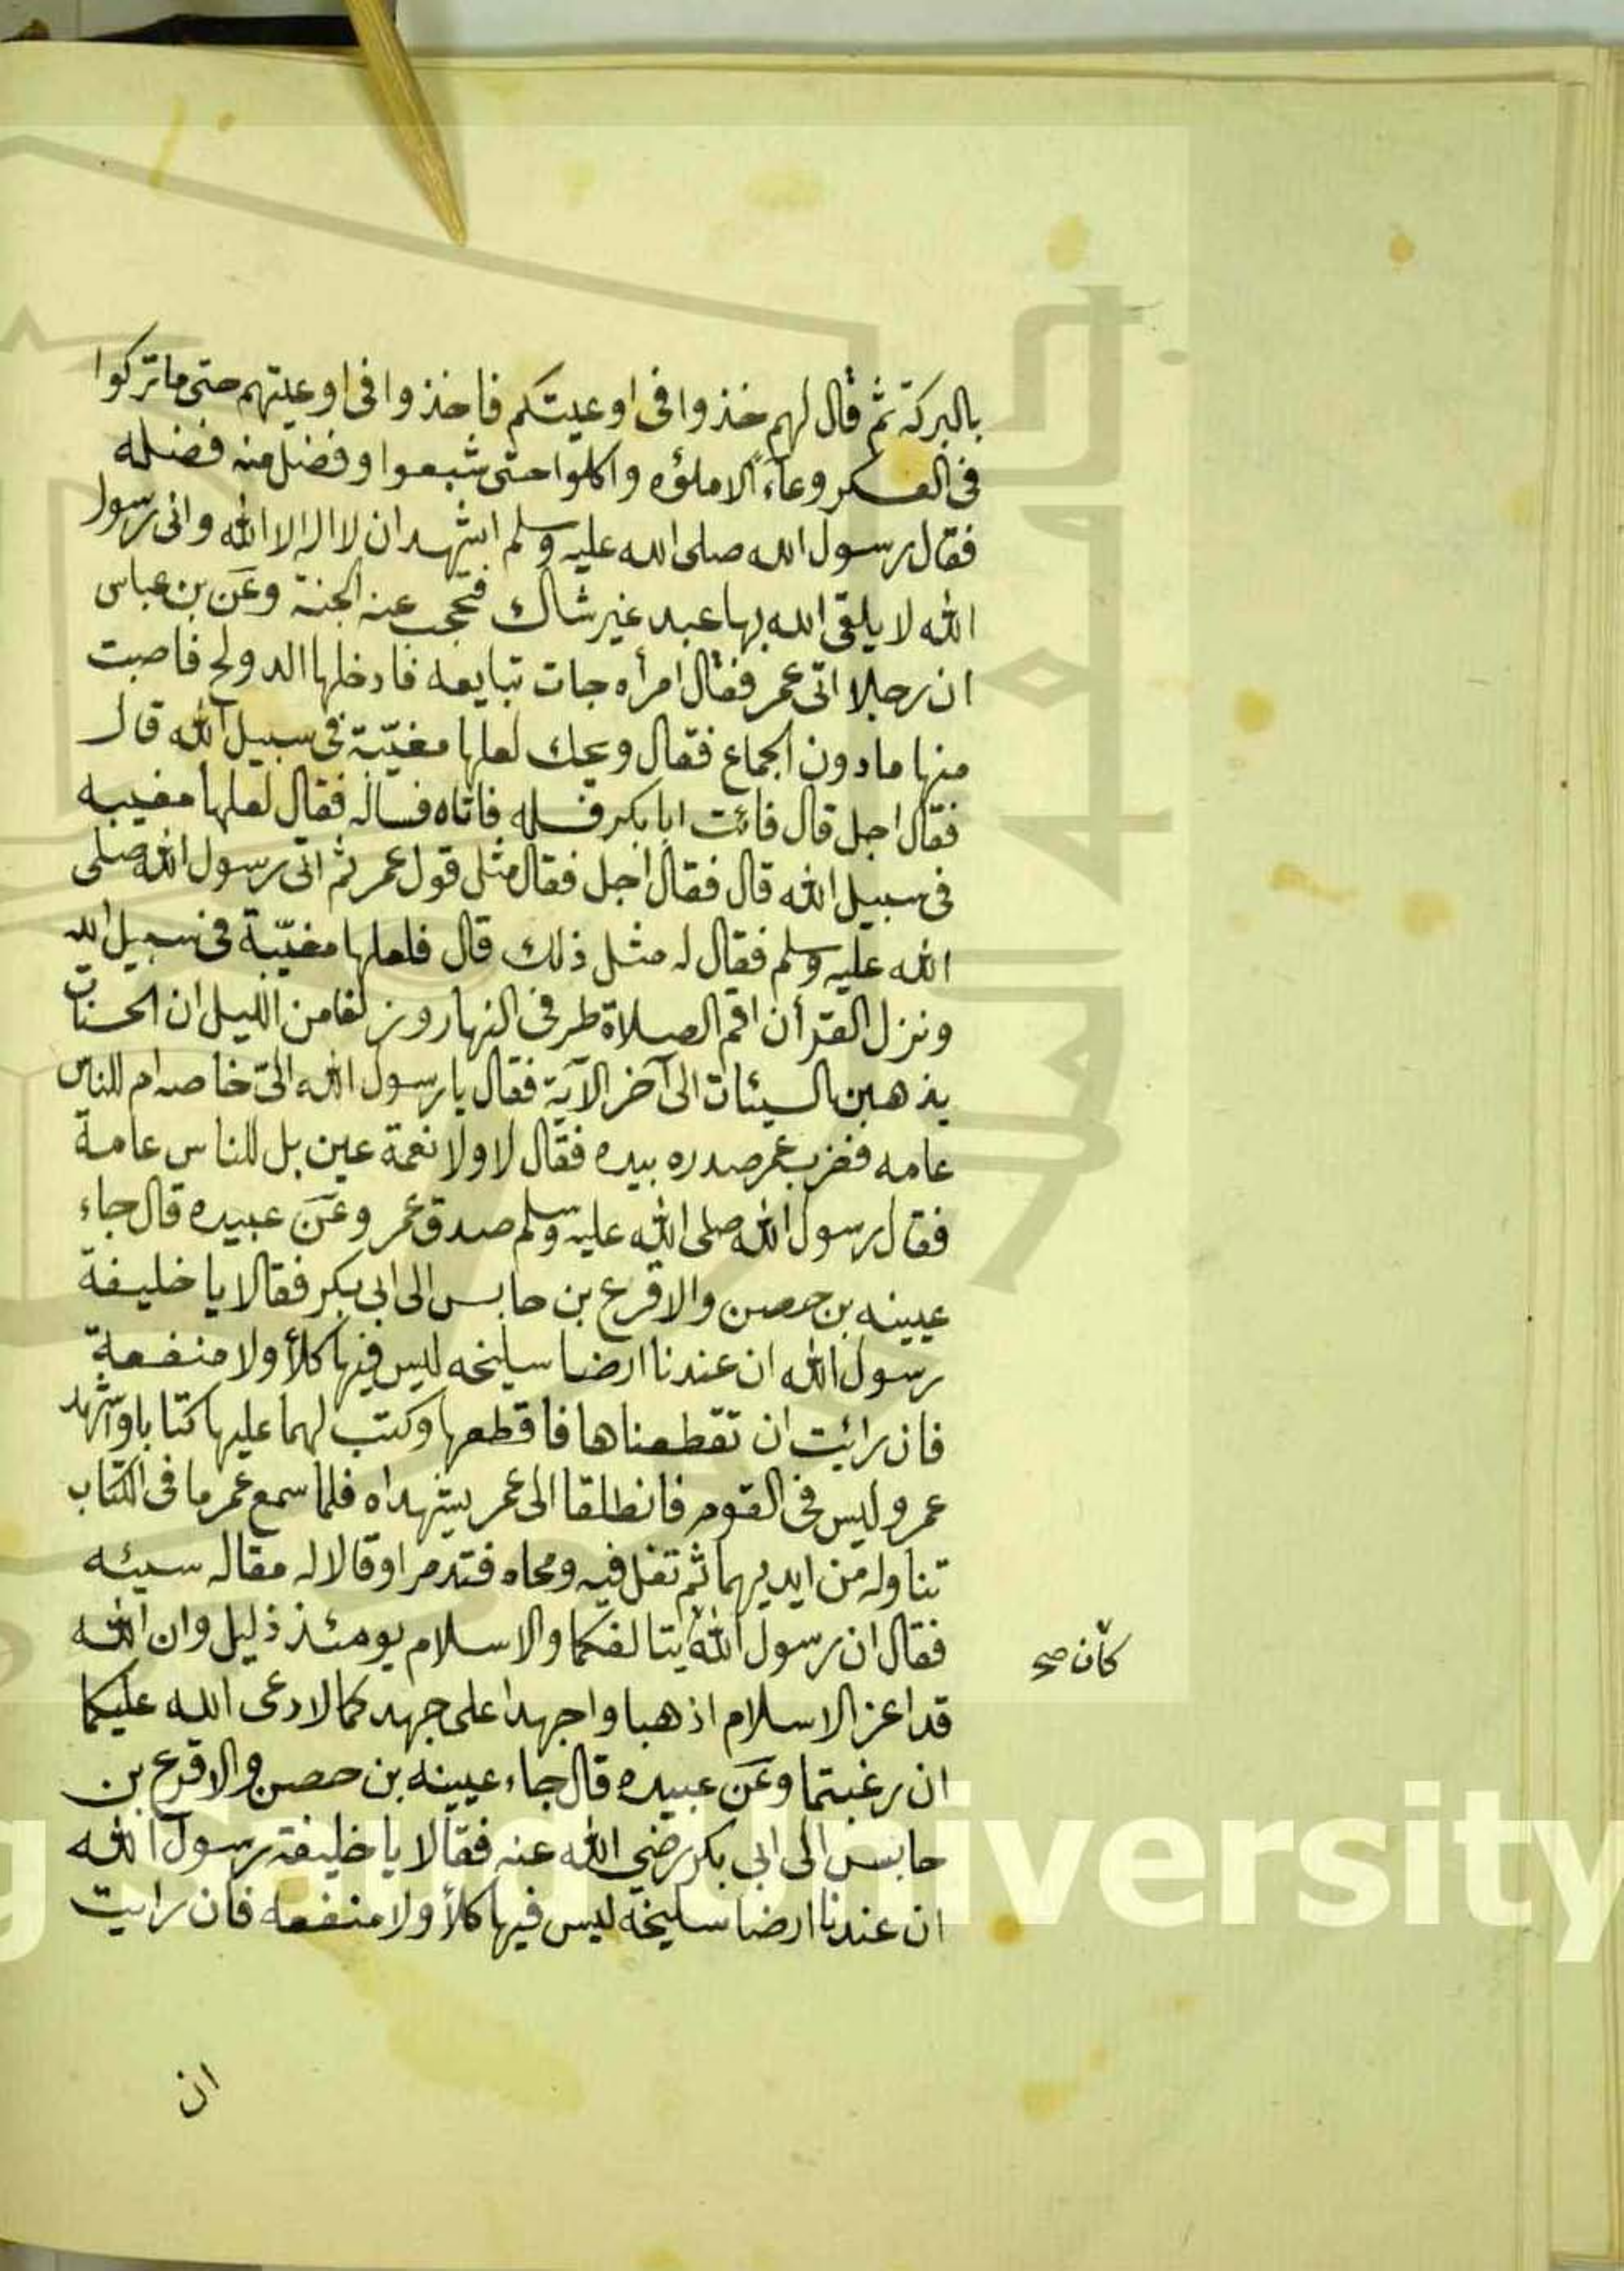 بالبركة ثم قال لهم خذوا فى اوعيتكم فاخذوا فى اوعيتهم حتى ما تركوا
فى العسكر وعاء الا ملؤه واكلوا حتى شبعوا وفضل منه فضله
فقال رسول الله صلى الله عليه وسلم اشهد ان لا اله الا الله وانى رسول
الله لا يلقى الله بها عبد غير شاك فتحجب عنه الجنة وعن بن عباس
ان رجلا اتى عمر فقال امرأه جات تبايعه فادخلها الدولج فاصبت
منها ما دون الجماع فقال ويحك لعلها مغيّبة فى سبيل الله قال
فقال اجل قال فائت ابا بكر فسله فاتاه فساله فقال لعلها مغيبه
فى سبيل الله قال فقال اجل فقال مثل قول عمر ثم اتى رسول الله صلى
الله عليه وسلم فقال له مثل ذلك قال فلعلها مغيّبة فى سبيل الله
ونزل القرأن اقم الصلاة طرفى النهار وزلفا من الليل ان الحسنات
يذهبن السيئات الى آخر الآية فقال يا رسول الله الىّ خاصه ام للناس
عامه فضرب عمر صدره بيده فقال لا ولا نعمة عين بل للناس عامة
فقال رسول الله صلى الله عليه وسلم صدق عمر وعن عبيده قال جاء
عيينه بن حصن والاقرع بن حابس الى ابى بكر فقالا يا خليفة
رسول الله ان عندنا ارضا سليخه ليس فيها كلأ ولا منفعة
فان رائت ان تقطعناها فاقطعها وكتب لهما عليها كتابا واشهد
عمر وليس فى القوم فانطلقا الى عمر يشهداه فلما سمع عمر ما فى الكتاب
تناوله من ايديهما ثم تفل فيه ومحاه فتذمرا وقالا له مقاله سيئه
فقال ان رسول الله يتالفكما والاسلام يومئذ ذليل وان الله
كان صح
قد اعز الاسلام اذهبا واجهدا على جهدكما لا رعى الله عليكما
ان رغبتما وعن عبيده قال جاء عيينه بن حصن والاقرع بن
حابس الى ابى بكر رضي الله عنه فقالا يا خليفة رسول الله
ان عندنا ارضا سليخة ليس فيها كلأ ولا منفعه فان رايت
ان